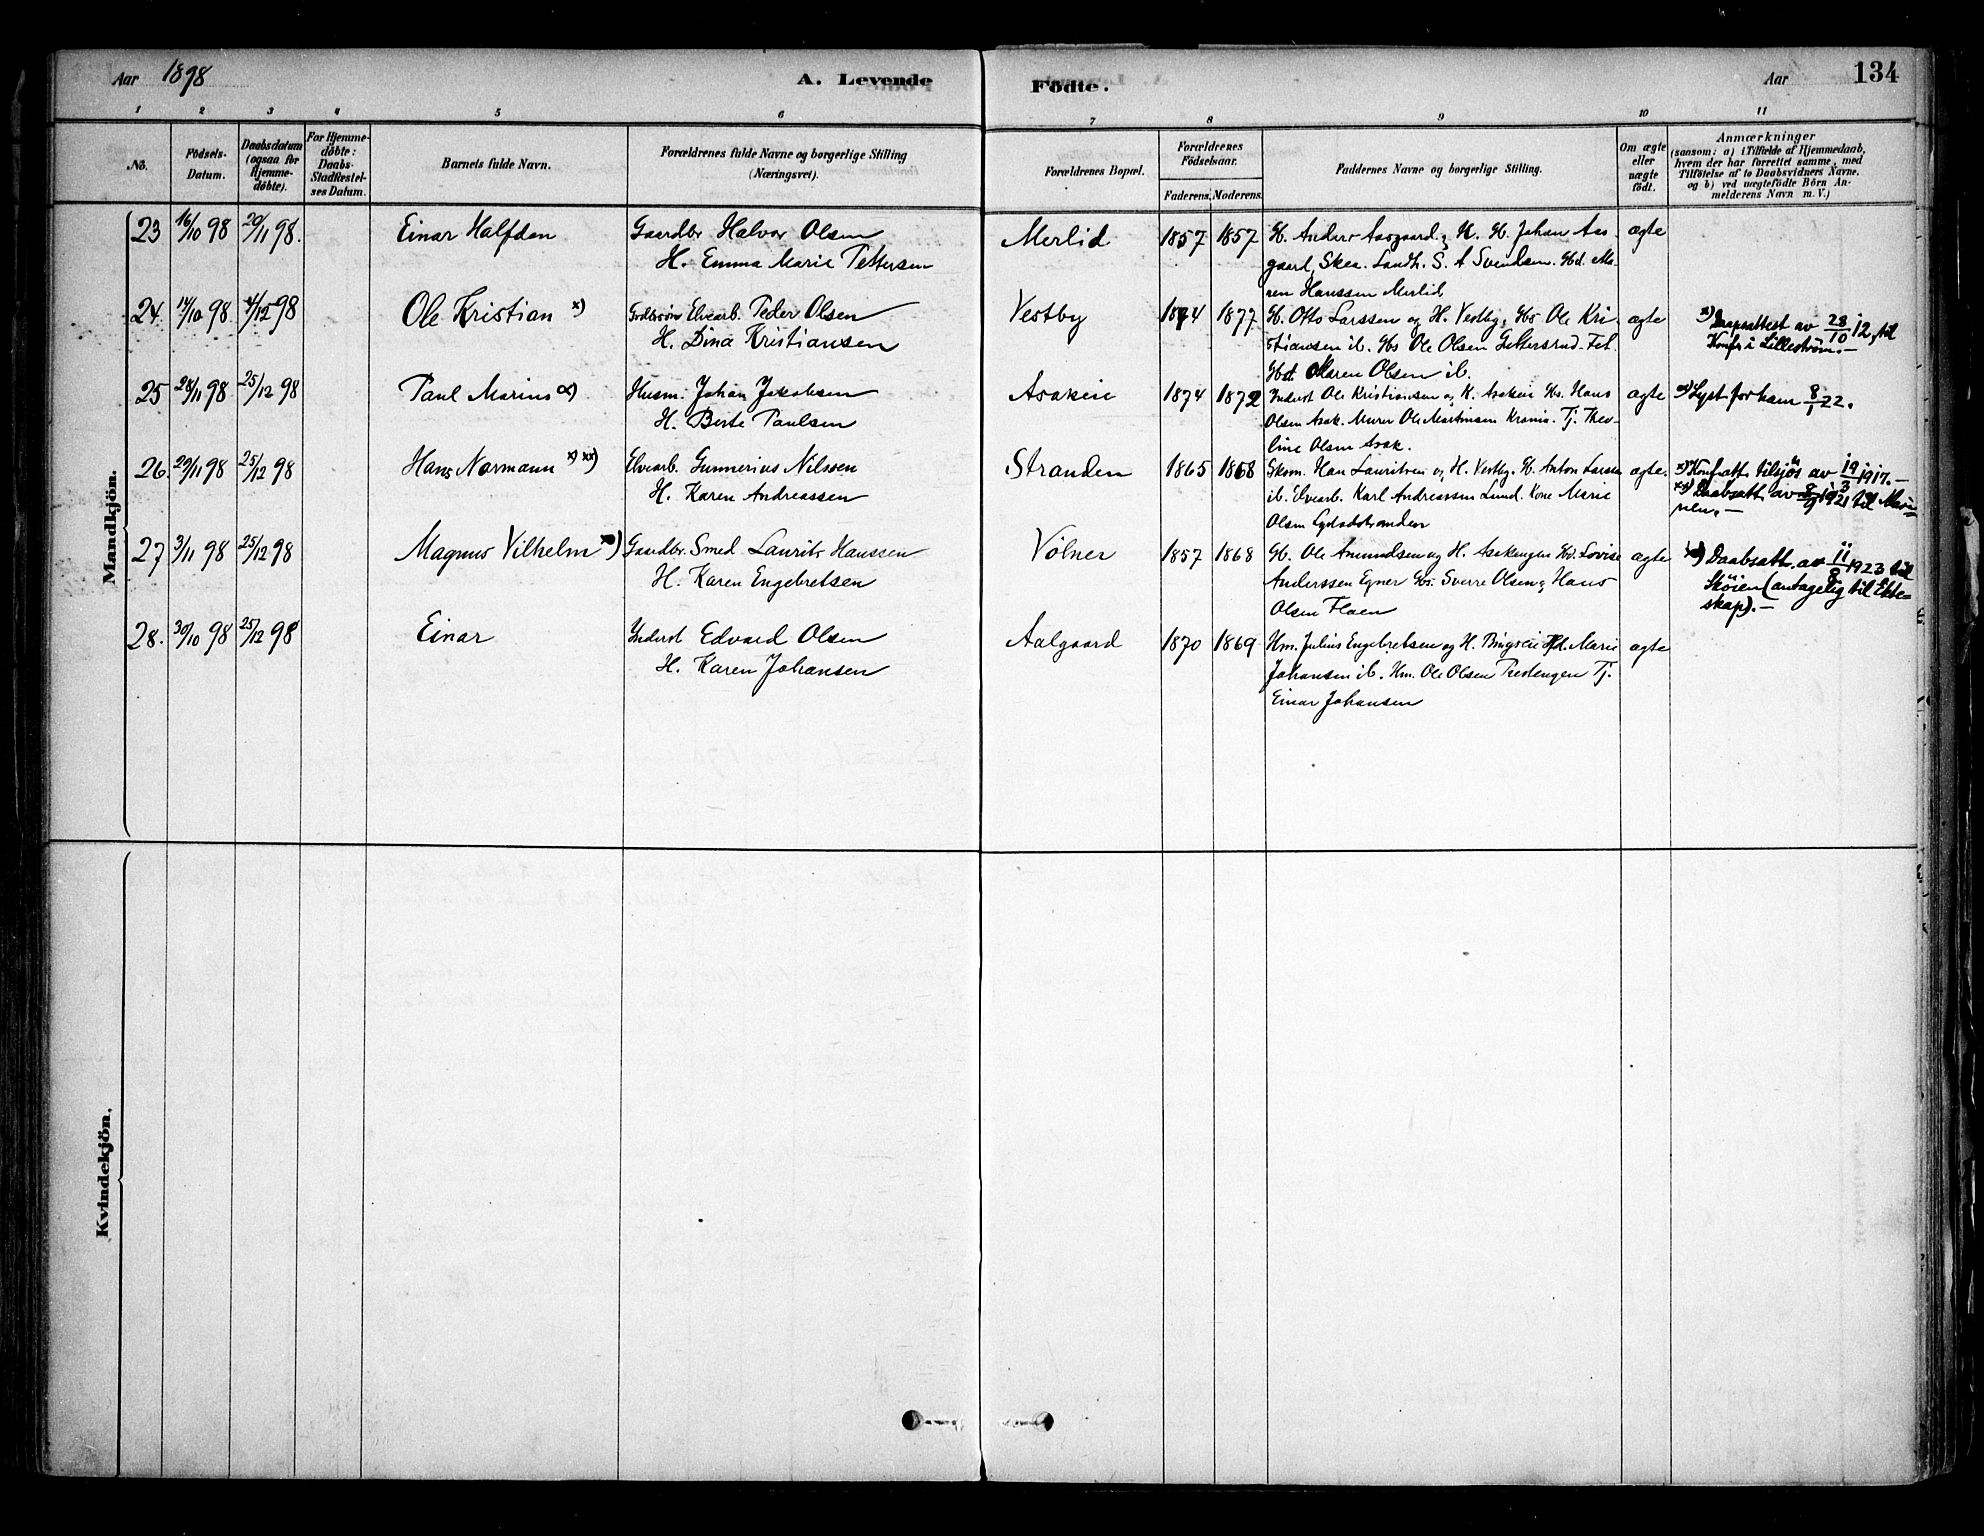 Aar 1898
A. Levende
Födte.
Aar
134
1 2 3 4 5 6
7 8 9 10 11
No.
Födsels-
Datum.
Daabsdatum
(ogsaa for
Hjemme-
döbte).
For Hjemme-
döbte:
Daabs-
Stadfæstel-
ses Datum.
Barnets fulde Navn.
Forældrenes fulde Navne og borgerlige Stilling
(Næringsvei).
Forældrenes Bopæl.
Forældrenes
Födselsaar.
Faderens. Moderens.
Faddernes Navne og borgerlige Stilling.
Om ægte
eller
uægte
födt.
Anmærkninger
(saasom: a) i Tilfælde af Hjemmedaab,
hvem der har forrettet samme, med
Tilföielse af to Daabsvidners Navne,
og b) ved uægtefödte Börn An-
melderens Navn m. V.)
Mandkjön.
23 16/10 98 20/11 98. Einar Halfdan Gaardbr Halvor Olsen
H. Emma Marie Pettersen
Merlid 1857 1857 G. Anders Aasgaard, K. G. Johan Aas-
gaard, Skea. Landh. S. A Svendsen. Gd. Ma-
ren Hanssen Merlid
ægte
24. 14/10 98 4/12 98 Ole Kristian x) Elvearb. Peder Olsen
H. Dina Kristiansen
Vestby 1874 1877 G. Otto Larssen og H. Vestby, Gs Ole Kri-
stiansen ib. Gs Ole Olsen Gettersrud. Fet.
Gd. Maren Olsen ib.
ægte x) Daapsattest av 28/10 12, til
Konfr i Lilleström.-
25 28/11 98 25/12 98 Paul Marius x) Husm. Johan Jakobsen
H. Berte Paulsen
Asakeie 1874 1872 Inderst Ole Kristiansen og K. Asakeie Gs. Hans
Olsen Asak. Murer Ole Martinsen Tj. Theo-
line Olsen Asak.
ægte x) Lyst for ham 8/1 22.
26. 29/11 98 25/12 98 Hans Normann x) xx) Elvearb. Gunnerius Nilssen
H. Karen Andreassen
Stranden 1865 1868 Skom. Han Lauritsen og H. Vestby. G. Anton Larsen
ib. Elvearb. Karl Andreassen Lund. Kone Marie
Olsen
ægte. x) Konfratt. tilsjös av 19/3 1917.-
xx) Daabsatt av 8/9 1921 til Mari-
nen.-
27 3/11 98 25/12 98 Magnus Vilhelm x) Gaardbr. Smed Laurits Hanssen
H. Karen Engebretsen
Völner 1857 1868 Gb. Ole Amundsen og H. Asakengen Gd. Lovise
Anderssen Egner Gs. Sverre Olsen, Hans
Olsen Flaen
ægte x) Daabsatt. av 11/8 1923 til
Sköien (antagelig til Ekte-
skap).-
28. 30/10 98 25/12 98 Einar Inderst Edvard Olsen
H. Karen Johansen
Aalgaard 1870 1869 Hm. Julius Engebretsen og H. Gd. Marie
Johansen ib. Hm. Ole Olsen Tj.
Einar Johansen
ægte
Kvindekjön.